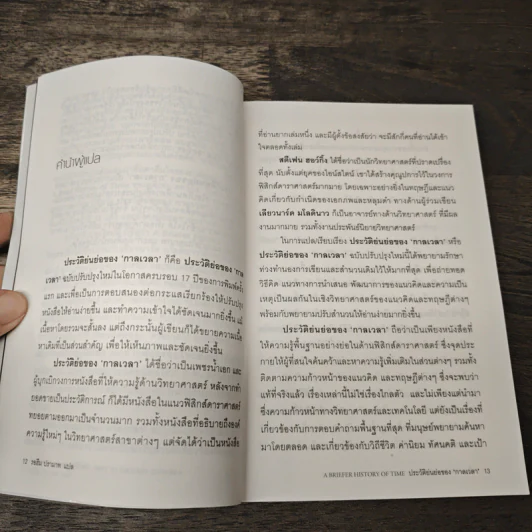 คำนำผู้แปล
ประวัติย่อของ 'กาลเวลา' ก็คือ ประวัติย่อของ 'กาล
เวลา' ฉบับปรับปรุงใหม่ในโอกาสครบรอบ 17 ปีของการพิมพ์ครั้ง
แรก และเพื่อเป็นการตอบสนองต่อกระแสเรียกร้องให้ปรับปรุง
หนังสือให้อ่านง่ายขึ้น และทำความเข้าใจได้ชัดเจนมากยิ่งขึ้น แม้
เนื้อหาโดยรวมจะสั้นลง แต่ถึงกระนั้นผู้เขียนก็ได้ขยายความเนื้อ
หาเดิมที่เป็นส่วนสำคัญ เพื่อให้เห็นภาพและชัดเจนยิ่งขึ้น
ประวัติย่อของ 'กาลเวลา' ได้ชื่อว่าเป็นเพชรน้ำเอก และ
ผู้บุกเบิกวงการหนังสือที่ให้ความรู้ด้านวิทยาศาสตร์ หลังจากทำ
ยอดขายเป็นประวัติการณ์ ก็ได้มีหนังสือในแนวฟิสิกส์ดาราศาสตร์
ทยอยตามออกมาเป็นจำนวนมาก รวมทั้งหนังสือที่อธิบายถึงองค์
ความรู้ใหม่ๆ ในวิทยาศาสตร์สาขาต่างๆ แต่จัดได้ว่าเป็นหนังสือ
12 รอฮีม ปรามาท แปล
ที่อ่านยากเล่มหนึ่ง และมีผู้ตั้งข้อสงสัยว่า จะมีสักกี่คนที่อ่านได้เข้า
ใจตลอดทั้งเล่ม
สตีเฟน ฮอว์กิ้ง ได้ชื่อว่าเป็นนักวิทยาศาสตร์ที่ปราดเปรื่อง
ที่สุด นับตั้งแต่ยุคของไอน์สไตน์ เขาได้สร้างคุณูปการไว้ในวงการ
ฟิสิกส์ดาราศาสตร์มากมาย โดยเฉพาะอย่างยิ่งในทฤษฎีและแนว
คิดเกี่ยวกับกำเนิดของเอกภพและหลุมดำ ทางด้านผู้ร่วมเขียน
เลียวนาร์ด มโลดินาว ก็เป็นอาจารย์ทางด้านวิทยาศาสตร์ ที่มีผล
งานมากมาย รวมทั้งงานประพันธ์นิยายวิทยาศาสตร์
ในการแปลเรียบเรียง ประวัติย่นย่อของ 'กาลเวลา' หรือ
ประวัติย่อของ 'กาลเวลา' ฉบับปรับปรุงใหม่นี้ได้พยายามรักษา
ท่วงทำนองการเขียนและสำนวนเดิมไว้ให้มากที่สุด เพื่อถ่ายทอด
วิธีคิด แนวทางการนำเสนอ พัฒนาการของแนวคิดและความเป็น
เหตุเป็นผลกันในเชิงวิทยาศาสตร์ของแนวคิดและทฤษฎีต่างๆ
พร้อมกับพยายามปรับสำนวนให้อ่านง่ายมากยิ่งขึ้น
ประวัติย่นย่อของ 'กาลเวลา' ถือว่าเป็นเพียงหนังสือที่
ให้ความรู้พื้นฐานอย่างย่อในด้านฟิสิกส์ดาราศาสตร์ ซึ่งจุดประ
กายให้ผู้ที่สนใจค้นคว้าและหาความรู้เพิ่มเติมในส่วนต่างๆ รวมทั้ง
ติดตามความก้าวหน้าของแนวคิด และทฤษฎีต่างๆ ซึ่งจะพบว่า
แท้ที่จริงแล้ว เรื่องเหล่านี้ไม่ใช่เรื่องไกลตัว และไม่เพียงแต่นำมา
ซึ่งความก้าวหน้าทางวิทยาศาสตร์และเทคโนโลยี แต่ยังเป็นเรื่องที่
เกี่ยวข้องกับการตอบคำถามพื้นฐานที่สุด ที่มนุษย์พยายามค้นหา
มาโดยตลอด และเกี่ยวข้องกับวิถีชีวิต ค่านิยม ทัศนคติ และเป้า
A BRIEFER HISTORY OF TIME ประวัติย่นย่อของ 'กาลเวลา' 13